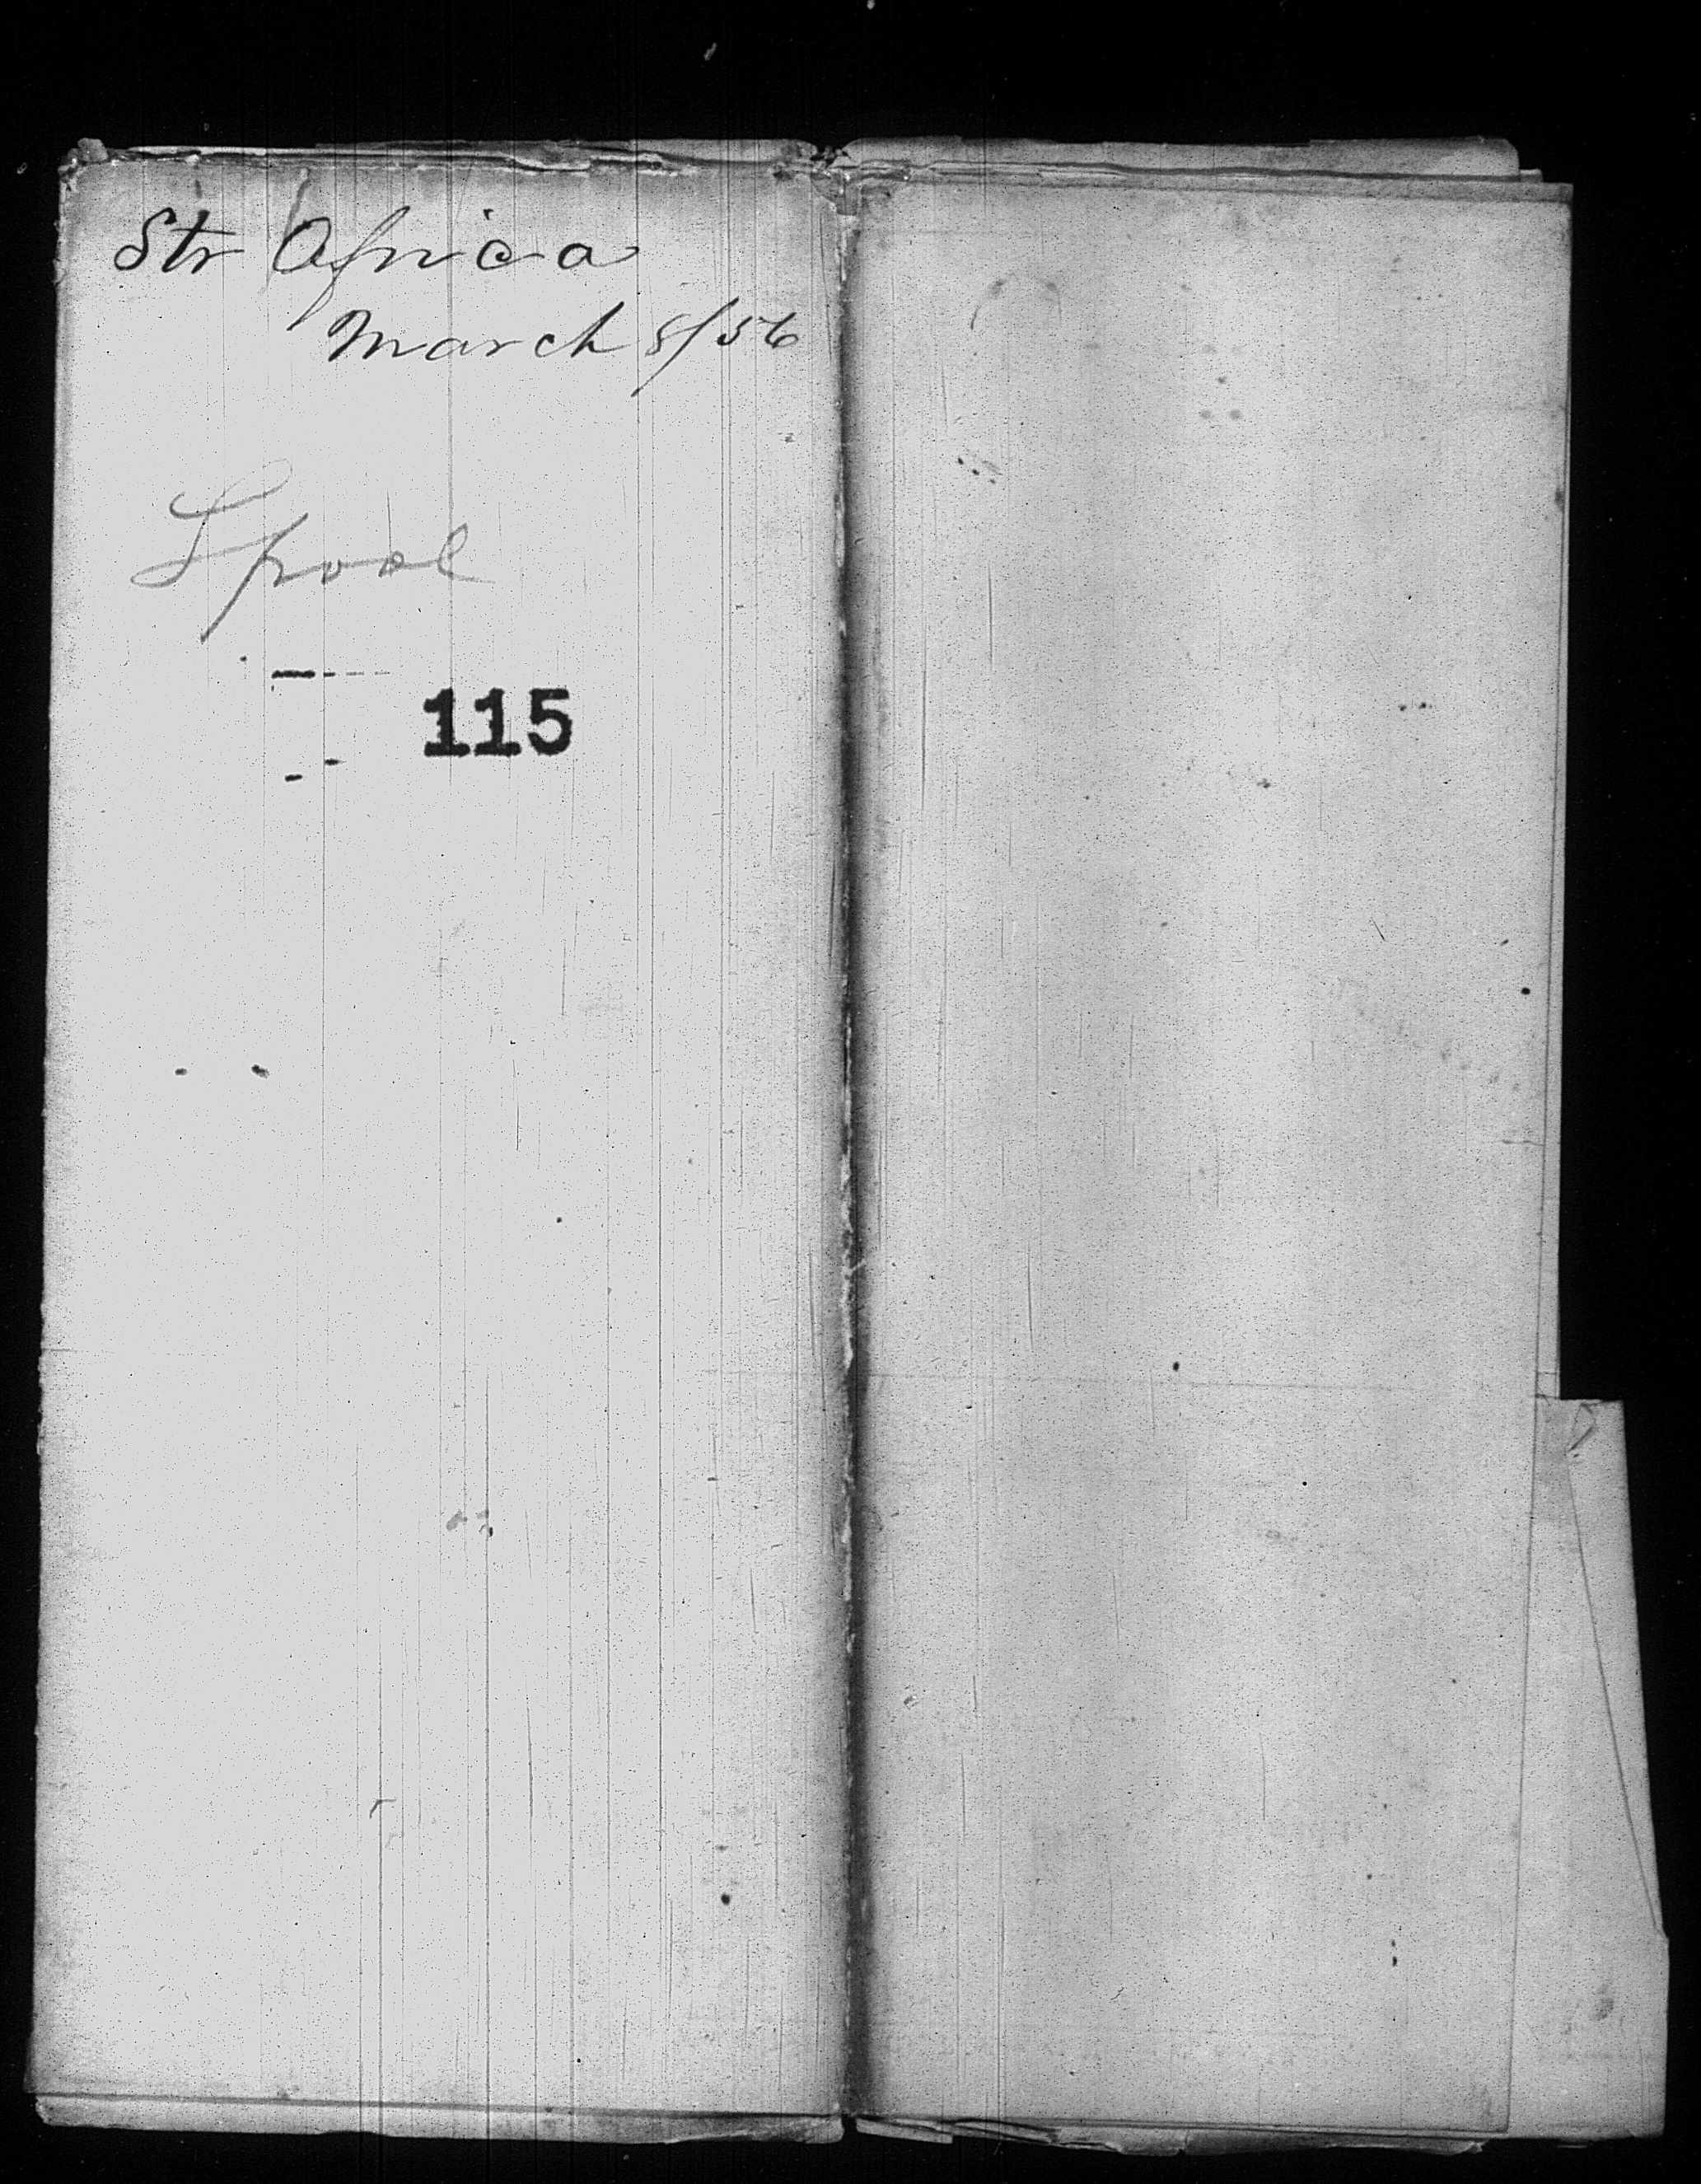 Str Africa
March 8/56
Lpool
115